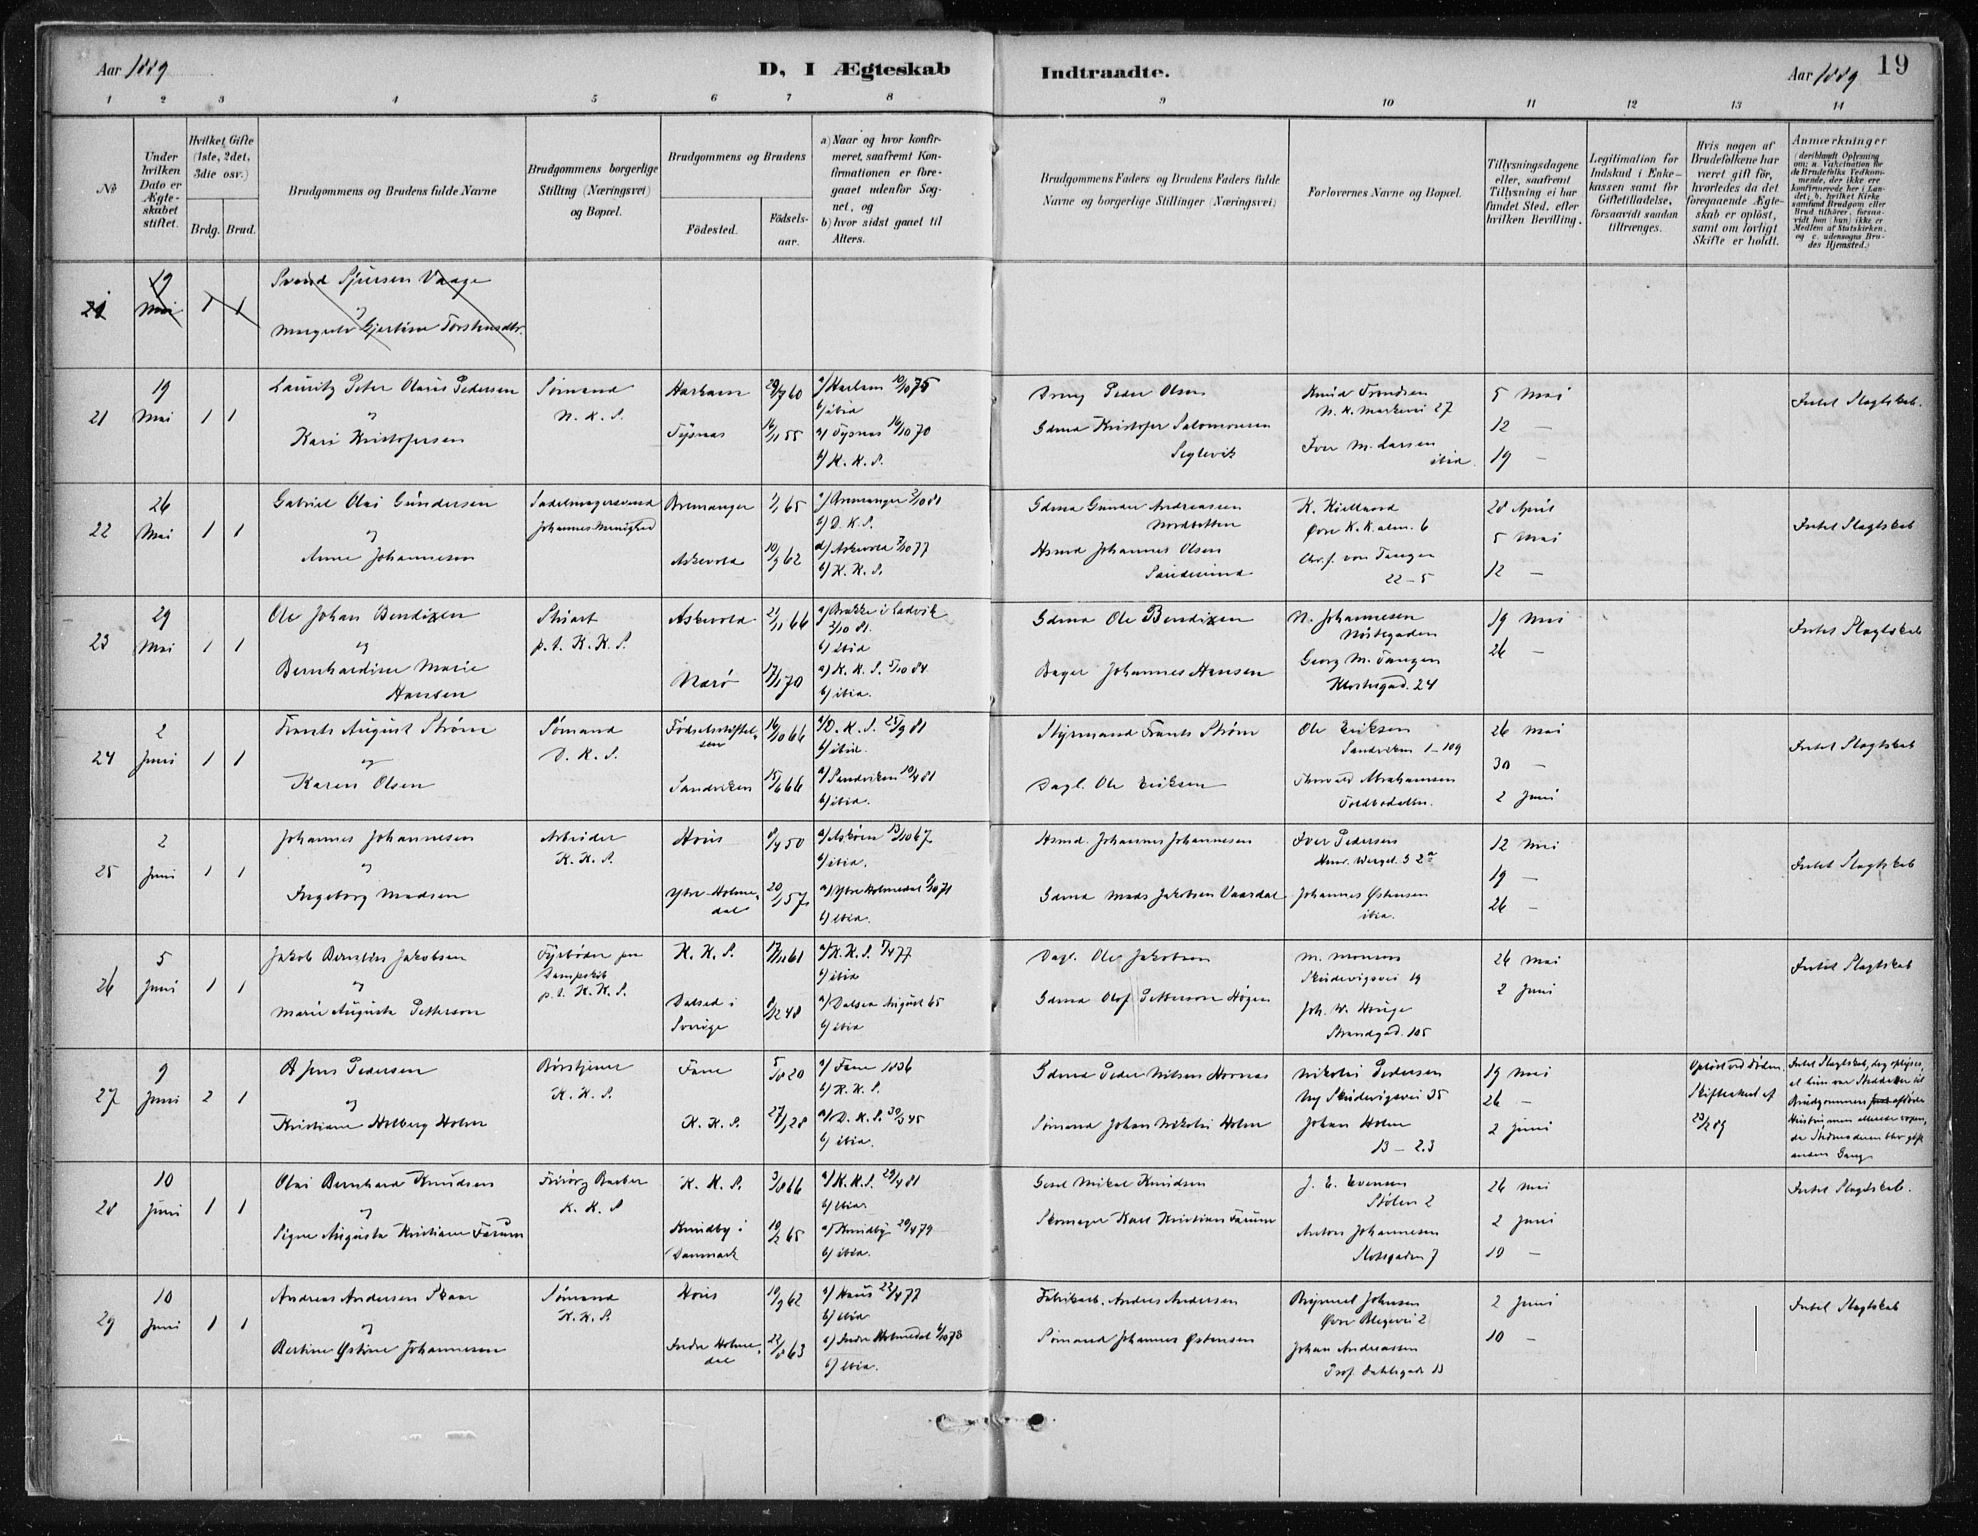 Aar 1889
D, I Ægteskab
Indtraadte.
Aar 1889.
19
1 2 3 4 5 6 7 8 9 10 11 12 13 14
№
Under hvilken Dato er Ægteskabet stiftet.
Hvilket Gifte (1ste, 2det, 3die osv.)
Brdg. Brud.
Brudgommens og Brudens fulde Navne
Brudgommens borgerlige Stilling (Næringsvei) og Bopæl.
Brudgommens og Brudens
Fødested.
Fødselsaar.
a) Naar og hvor konfirmeret, saafremt Konfirmationen er foregaaet udenfor Sognet, og
b) hvor sidst gaaet til Alters.
Brudgommens Faders og Brudens Faders fulde Navne og borgerlige Stillinger (Næringsvei)
Forlovernes Navne og Bopæl.
Tillysningsdagene eller, saafremt Tillysning ei har fundet Sted, efter hvilken Bevilling.
Legitimation for Indskud i Enkekassen samt for Giftetilladelse, forsaavidt saadan tiltrænges.
Hvis nogen af Brudefolkene har været gift før, hvorledes da det foregaaende Ægteskab er opløst, samt om lovligt Skifte er holdt.
Anmærkninger
(deriblandt Oplysning om: a. Vakcination for de Brudefolks Vedkommende, der ikke ere konfirmerede her i Landet; b. hvilket Kirkesamfund Brudgom eller Brud tilhører, forsaavidt han (hun) ikke er Medlem af Statskirken, og c. udensogns Brudes Hjemsted.)
21 19 Mai 1 1
Svend Sjursen Vaage
og
Margrete Gjertine Torstensdtr.
21 19 Mai 1 1
Lauritz Peter Olaus Pedersen
og
Kari Kristofersen
Sømand
N. K. S.
Harham 29/7 60
Tysnæs 16/11 55
a) Harham 10/10 75
b) ibid
a) Tysnæs 16/10 70
b) K. K. S.
Dreng Peder Olsen
Gdmd Kristofer Salomonsen
Seglevik
Knud Trondsen
N. K. Markevei 27
Iver M. Larsen
ibid.
5 Mai
12 —
19 —
Intet Slagtskab.
22 26 Mai 1 1
Gabriel Olai Gundersen
og
Anne Johannesen
Sadelmagersvend
Johannes Menighed
Bremanger 1/1 65
Askevold 10/9 62
a) Bremanger 2/10 81
b) D. K. S.
a) Askevold 7/10 77
b) K. K. S.
Gdmd Gunder Andreassen
Nordbotten
Hsmd Johannes Olsen
Sandesund
K. Kielland
Øvre K. K. alm. 6
Chr. f. von Tangen
22 – 5
28 April
5 Mai
12 —
Intet Slagtskab
23 29 Mai 1 1
Ole Johan Bendixen
og
Bernhardine Marie
Hansen
Stuart
p. t. K. K. S.
Askevold 21/11 66
Nærø 17/1 70
a) Brække i Ladvik
2/10 81.
b) ibid
a) K. K. S. 5/10 84
b) ibid.
Gdmd Ole Bendixen
Bager Johannes Hansen
N. Johannesen
Nøstegaden
Georg M. Tangen
Klostergad. 24
19 Mai
26 —
Intet Slagtskab
24 2 Juni 1 1
Frants August Strøm
og
Karen Olsen
Sømand
D. K. S.
Fødselsstiftelsen 16/10 66
Sandviken 15/6 66
a) D. K. S. 25/9 81
b) ibid.
a) Sandviken 10/4 81
b) ibid.
Styrmand Frants Strøm
Dagl. Ole Eriksen
Ole Eriksen
Sandviken 1–109
Thorvald Abrahamsen
Toldbodalm.
26 Mai
30 —
2 Juni
Intet Slagtskab
25 2 Juni 1 1
Johannes Johannesen
og
Ingeborg Madsen
Arbeider
K. K. S.
Hous 8/4 50
Ytre Holmedal 20/1 57
a) Askøen 13/10 67
b) ibid.
a) Ytre Holmedal 8/10 71
b) ibid.
Hsmd. Johannes Johannesen
Gdmd Mads Jakobsen Vaardal
Iver Pedersen
Henr. Wergel. G 2a
Johannes Østensen
ibid.
12 Mai
19 —
26 —
Intet Slagtskab
26 5 Juni 1 1
Jakob Berntin Jakobsen
og
Marie Augusta Petterson
Fyrbøder paa
Dampskib
p. t. K. K. S.
K. K. S. 17/11 61
Dalsed i
Sverige 8/12 48
a) K. K. S. 8/4 77
b) ibid
a) Dalsed August 65
b) ibid
Dagl. Ole Jakobsen
Gdmd Olof Petterson Högen
M. Monsen
Skudevigsvei 19
Joh. W. Hauge
Strandgad. 105
26 Mai
2 Juni
Intet Slagtskab
27 9 Juni 2 1
Jens Pedersen
og
Kristiane Holberg Holm
Børstjener
K. K. S.
Fane 5/8 20
K. K. S. 27/1 28
a) Fane 1836
b) K. K. S.
a) D. K. S. 30/3 45
b) ibid.
Gdmd Peder Nilsen Hornæs
Sømand Johan Nikolai Holm
Nikolai Pedersen
Ny Skudevigsvei 35
Johan Holm
13 – 23
19 Mai
26 —
2 Juni
Opløst ved Døden
Skifteakest af
23/2 89
Intet Slagtskab, dog oplyses,
at hun var Steddatter til
Brudgommens afdøde
Hustru, men allerede voxen,
da Stedmoderen blev gift
anden Gang
28 10 Juni 1 1
Olai Bernhard Knudsen
og
Signe Augusta Kristiane Farum
Frisørg Barber
K. K. S
K. K. S. 3/8 66
Knudby i
Danmark 10/2 65
a) K. K. S. 24/4 81
b) ibid.
a) Knudby 20/4 79
b) ibid.
Gesel Mikal Knudsen
Skomager Karl Kristian Farum
J. E. Evensen
Stølen 2
Anton Johannesen
Slotsgaden 7
26 Mai
2 Juni
10 —
Intet Slagtskab.
29 10 Juni 1 1
Andreas Andersen Skaar
og
Bertine Østine Johannesen
Sømand
K. K. S.
Hous 10/9 62
Indre Holmedal 22/8 63
a) Haus 22/4 77
b) ibid
a) Indre Holmedal 6/10 78
b) ibid.
Fabrikarb. Andres Andersen
Sømand Johannes Østensen
Brynnel Johnsen
Øvre Blegevei 2
Johan Andreassen
Prof. Dahlsgade 13
2 Juni
10 —
Intet Slagtskab